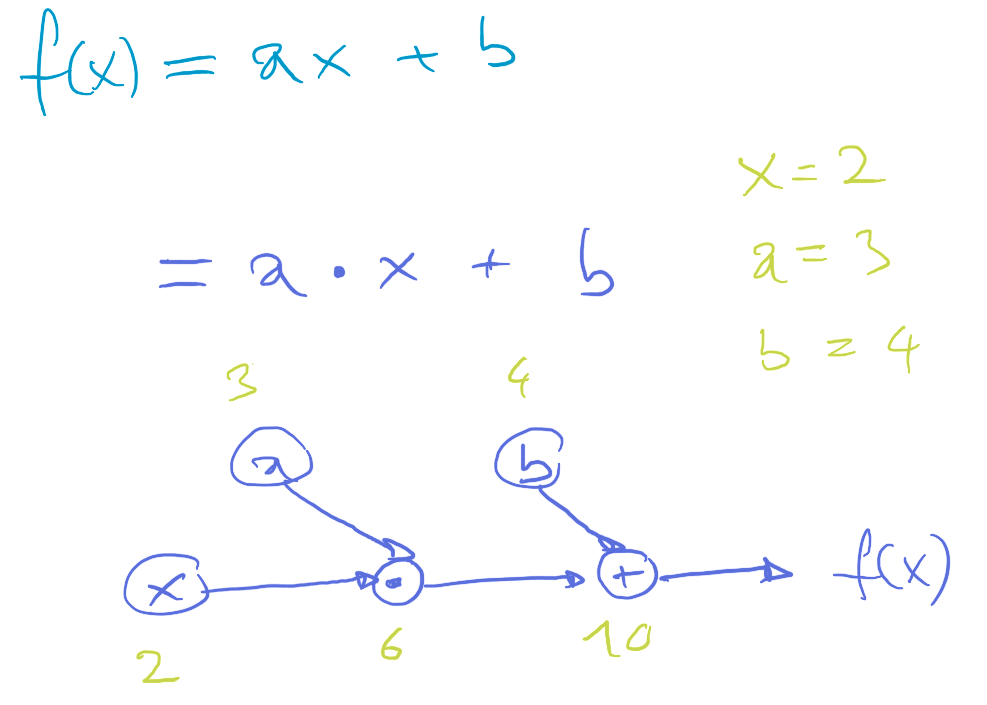 f(x) = ax + b
x = 2
= a · x + b
a = 3
b = 4
3 4
a b
x · + f(x)
2 6 10